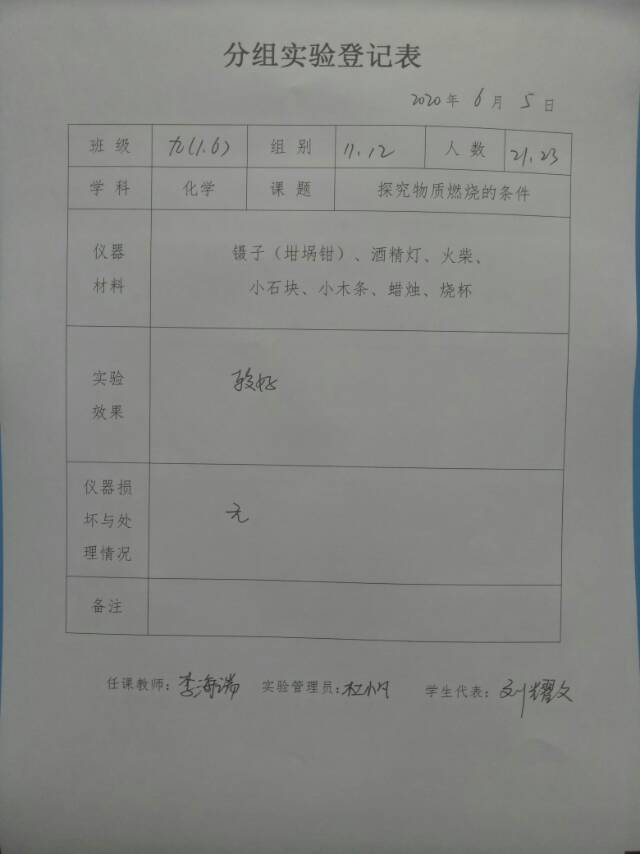 分组实验登记表
2020年 6月 5日
班级 九(1.6) 组别 11.12 人数 21.23
学科 化学 课题 探究物质燃烧的条件
仪器材料 镊子（坩埚钳）、酒精灯、火柴、
小石块、小木条、蜡烛、烧杯
实验效果 较好
仪器损坏与处理情况 无
备注
任课教师：李海瑞 实验管理员：杜小凡 学生代表：刘耀文